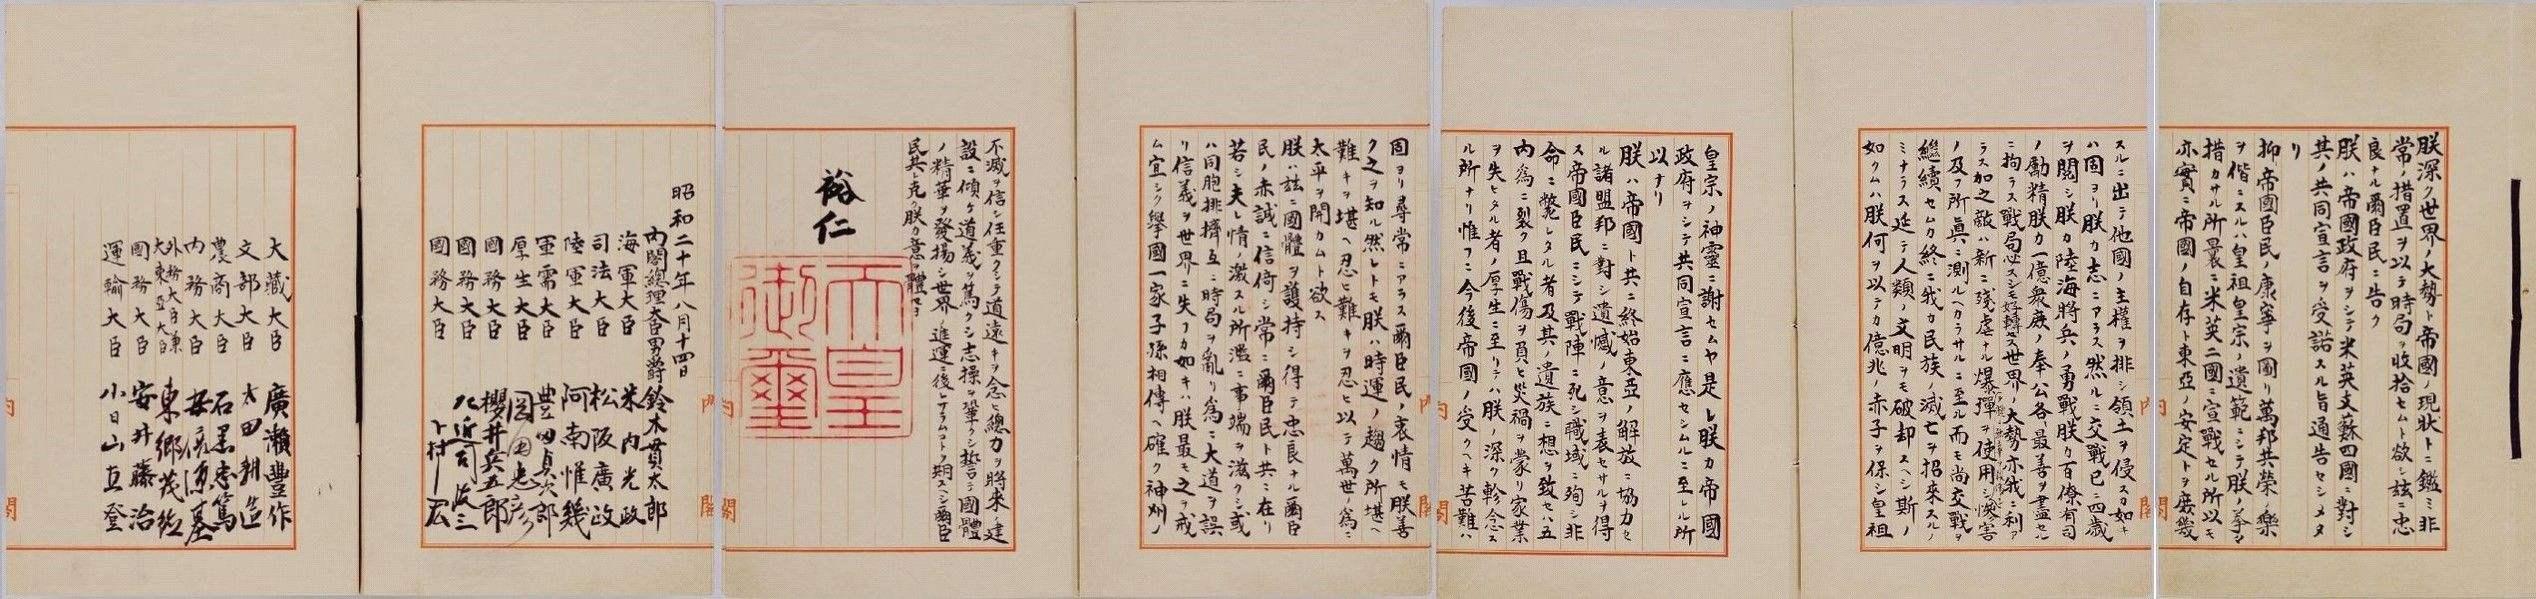 朕深ク世界ノ大勢ト帝國ノ現狀トニ鑑ミ非
常ノ措置ヲ以テ時局ヲ收拾セムト欲シ茲ニ忠
良ナル爾臣民ニ告ク
朕ハ帝國政府ヲシテ米英支蘇四國ニ對シ
其ノ共同宣言ヲ受諾スル旨通告セシメタ
リ
抑帝國臣民ノ康寧ヲ圖リ萬邦共榮ノ樂
ヲ偕ニスルハ皇祖皇宗ノ遺範ニシテ朕ノ拳々
措カサル所曩ニ米英二國ニ宣戰セル所以モ
亦實ニ帝國ノ自存ト東亞ノ安定トヲ庶幾
スルニ出テ他國ノ主權ヲ排シ領土ヲ侵スカ如キ
ハ固ヨリ朕カ志ニアラス然ルニ交戰已ニ四歲
ヲ閱シ朕カ陸海將兵ノ勇戰朕カ百僚有司
ノ勵精朕カ一億衆庶ノ奉公各最善ヲ盡セル
ニ拘ラス戰局必スシモ好轉セス世界ノ大勢亦我ニ利ア
ラス加之敵ハ新ニ殘虐ナル爆彈ヲ使用シ慘害
ノ及フ所眞ニ測ルヘカラサルニ至ル而モ尚交戰ヲ
繼續セムカ終ニ我カ民族ノ滅亡ヲ招來スルノ
ミナラス延テ人類ノ文明ヲモ破却スヘシ斯ノ
如クムハ朕何ヲ以テカ億兆ノ赤子ヲ保シ皇祖
皇宗ノ神靈ニ謝セムヤ是レ朕カ帝國
政府ヲシテ共同宣言ニ應セシムルニ至レル所
以ナリ
朕ハ帝國ト共ニ終始東亞ノ解放ニ協力セ
ル諸盟邦ニ對シ遺憾ノ意ヲ表セサルヲ得
ス帝國臣民ニシテ戰陣ニ死シ職域ニ殉シ非
命ニ斃レタル者及其ノ遺族ニ想ヲ致セハ五
內爲ニ裂ク且戰傷ヲ負ヒ災禍ヲ蒙リ家業
ヲ失ヒタル者ノ厚生ニ至リテハ朕ノ深ク軫念ス
ル所ナリ惟フニ今後帝國ノ受クヘキ苦難ハ
固ヨリ尋常ニアラス爾臣民ノ衷情モ朕善
ク之ヲ知ル然レトモ朕ハ時運ノ趨ク所堪ヘ
難キヲ堪ヘ忍ヒ難キヲ忍ヒ以テ萬世ノ爲ニ
太平ヲ開カムト欲ス
朕ハ茲ニ國體ヲ護持シ得テ忠良ナル爾臣
民ノ赤誠ニ信倚シ常ニ爾臣民ト共ニ在リ
若シ夫レ情ノ激スル所濫ニ事端ヲ滋クシ或
ハ同胞排擠互ニ時局ヲ亂リ爲ニ大道ヲ誤
リ信義ヲ世界ニ失フカ如キハ朕最モ之ヲ戒
ム宜シク擧國一家子孫相傳ヘ確ク神州ノ
不滅ヲ信シ任重クシテ道遠キヲ念ヒ總力ヲ將來ノ建
設ニ傾ケ道義ヲ篤クシ志操ヲ鞏クシ誓テ國體
ノ精華ヲ發揚シ世界ノ進運ニ後レサラムコトヲ期スヘシ爾臣
民其レ克ク朕カ意ヲ體セヨ
裕仁
天皇
御璽
昭和二十年八月十四日
內閣總理大臣男爵 鈴木貫太郎
海軍大臣 米內光政
司法大臣 松阪廣政
陸軍大臣 阿南惟幾
軍需大臣 豐田貞次郎
厚生大臣 岡田忠彥
國務大臣 櫻井兵五郎
國務大臣 左近司政三
國務大臣 下村宏
大藏大臣 廣瀨豐作
文部大臣 太田耕造
農商大臣 石黑忠篤
內務大臣 安倍源基
外務大臣兼大東亞大臣 東鄉茂德
國務大臣 安井藤治
運輸大臣 小日山直登
內閣
內閣
內閣
內閣